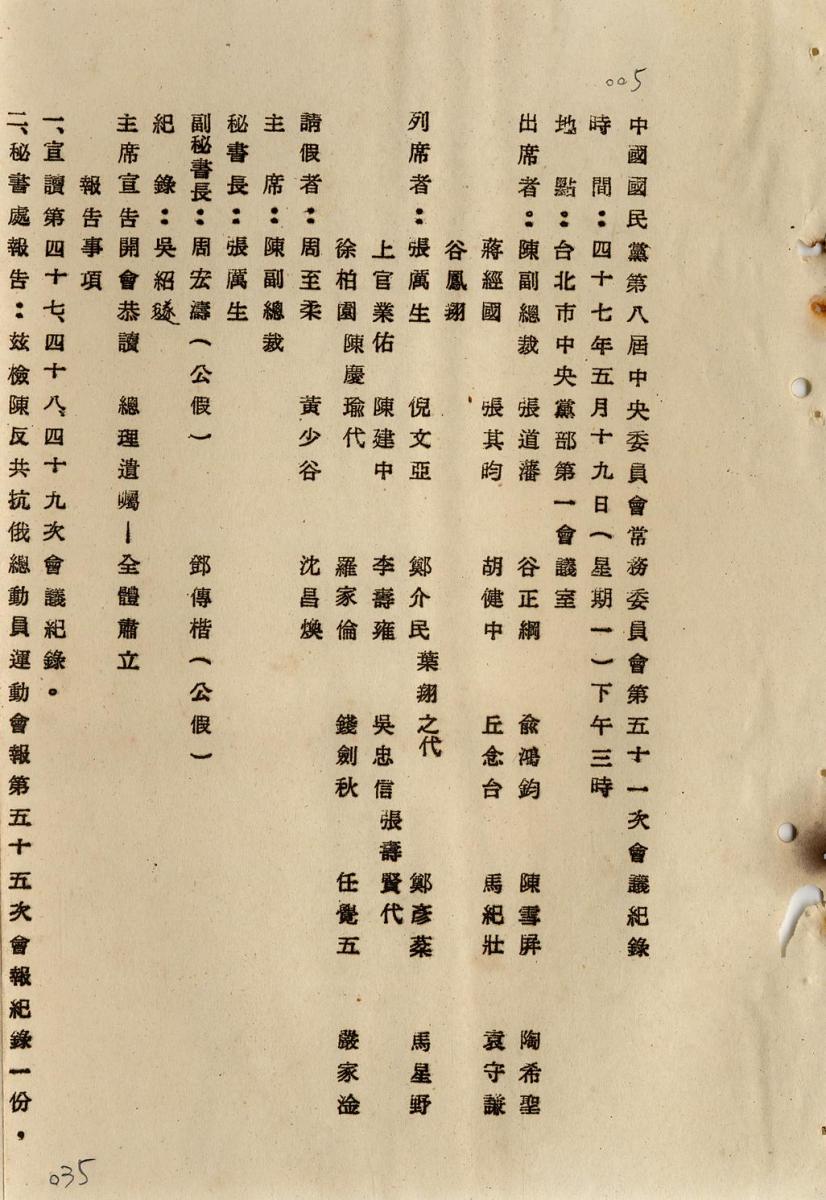 005
中國國民黨第八屆中央委員會常務委員會第五十一次會議紀錄
時間：四十七年五月十九日（星期一）下午三時
地點：台北市中央黨部第一會議室
出席者：陳副總裁 張道藩 谷正綱 俞鴻鈞 陳雪屏 陶希聖
蔣經國 張其昀 胡健中 丘念台 馬紀壯 袁守謙
谷鳳翔
列席者：張厲生 倪文亞 鄭介民 葉翔之代 鄭彥棻 馬星野
上官業佑 陳建中 李壽雍 吳忠信 張壽賢代
徐柏園 陳慶瑜代 羅家倫 錢劍秋 任覺五 嚴家淦
請假者：周至柔 黃少谷 沈昌煥
主席：陳副總裁
秘書長：張厲生
副秘書長：周宏濤（公假） 鄧傳楷（公假）
紀錄：吳紹璲
主席宣告開會恭讀 總理遺囑—全體肅立
報告事項
一、宣讀第四十七、四十八、四十九次會議紀錄。
二、秘書處報告：茲檢陳反共抗俄總動員運動會報第五十五次會報紀錄一份，
035